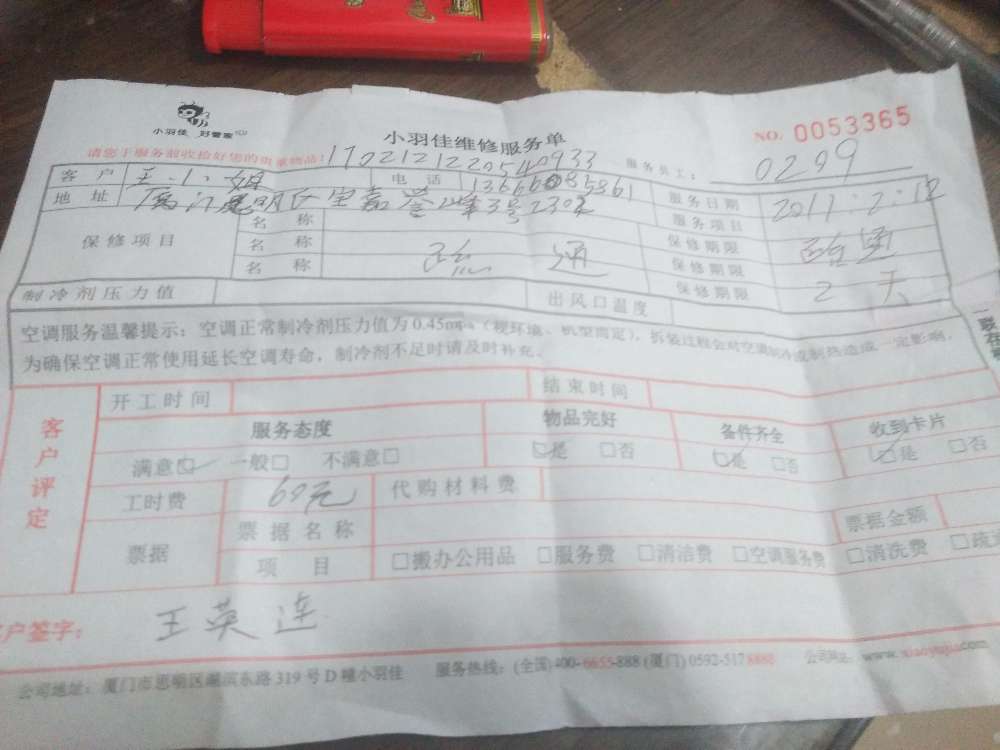 小羽佳 好管家
小羽佳维修服务单
NO. 0053365
请您于服务前收拾好您的贵重物品! 17021212205410933
服务员工: 0209
客户 王小姐 电话 服务日期
地址 3号2302 服务项目
保修项目 名称 保修期限
名称 疏通 保修期限
名称 保修期限 2天
制冷剂压力值 出风口温度
空调服务温馨提示:空调正常制冷剂压力值为0.45mpa(视环境、机型而定),拆装过程会对空调制冷或制热造成一定影响,
为确保空调正常使用延长空调寿命,制冷剂不足时请及时补充。
客户评定
开工时间 结束时间
服务态度 物品完好 备件齐全 收到卡片
满意☑ 一般□ 不满意□ ☑是 □否 ☑是 □否 ☑是 □否
工时费 60元 代购材料费
票据 票据名称 票据金额
项目 □搬办公用品 □服务费 □清洁费 □空调服务费 □清洗费
户签字: 王英连
公司地址:厦门市思明区湖滨东路319号D幢小羽佳 服务热线:(全国)400-6655-888 (厦门) 0592-5178888 公司网址:www.xiaoyujia.com